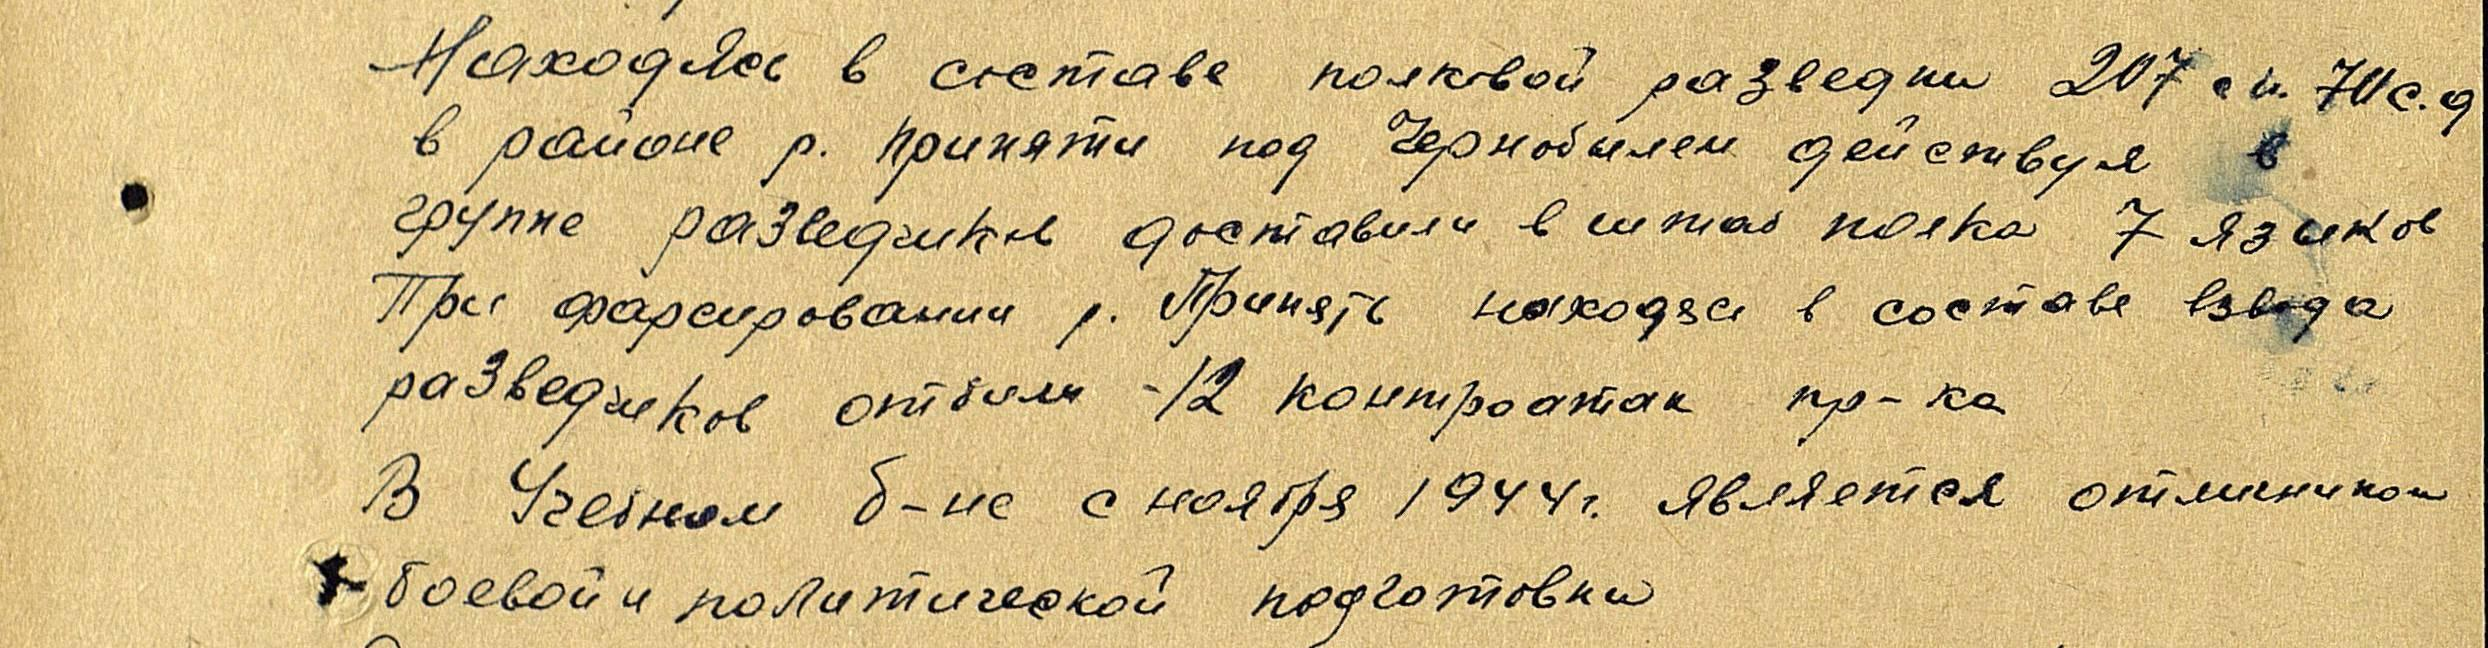 Находясь в составе полковой разведки 207 сп. 70 с.д
в районе р. Припяти под Чернобылем действуя в
группе разведчиков доставили в штаб полка 7 языков
При фарсировании р. Припять находяс в составе взвода
разведчиков отбили -12 контроатак пр-ка
В Учебном б-не с ноября 1944г. является отличником
боевой и политической подготовки